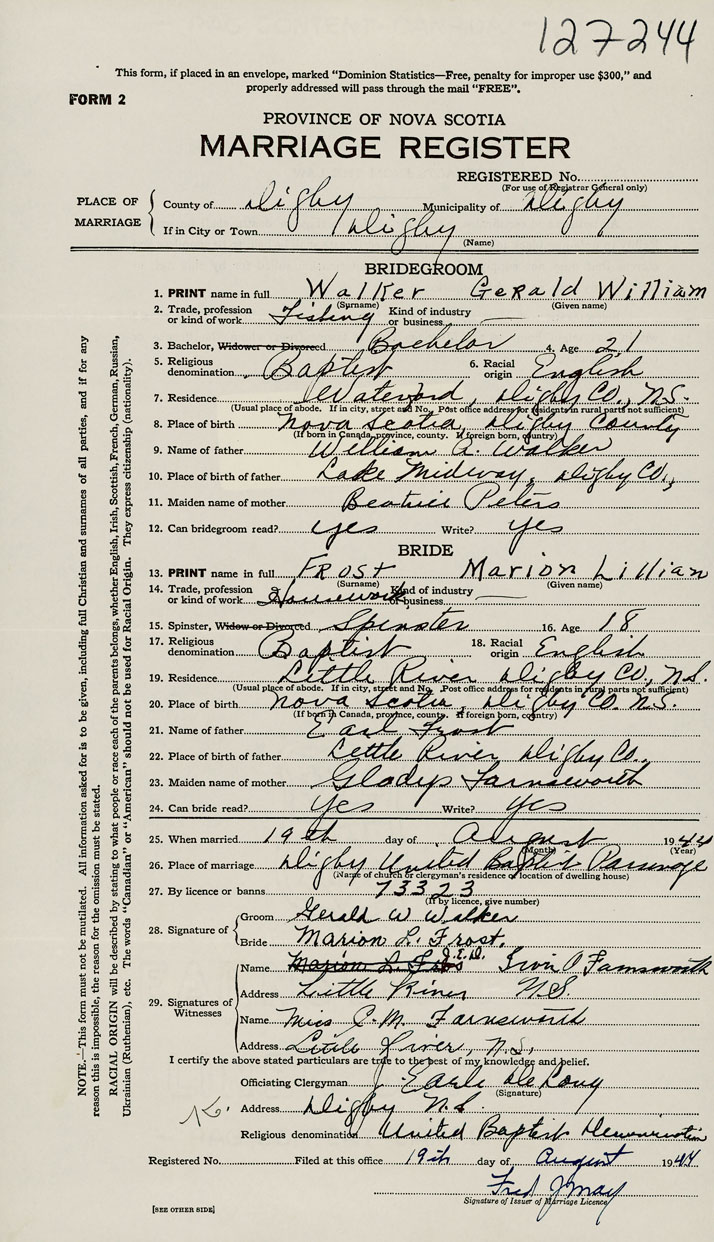 127244
This form, if placed in an envelope, marked "Dominion Statistics—Free, penalty for improper use $300," and
properly addressed will pass through the mail "FREE".
FORM 2
PROVINCE OF NOVA SCOTIA
MARRIAGE REGISTER
REGISTERED No.
(For use of Registrar General only)
PLACE OF MARRIAGE
County of Digby Municipality of Digby
If in City or Town Digby
(Name)
BRIDEGROOM
1. PRINT name in full Walker Gerald William
(Surname) (Given name)
2. Trade, profession or kind of work Fishing Kind of industry or business —
3. Bachelor, Widower or Divorced Bachelor 4. Age 21
5. Religious denomination Baptist 6. Racial origin English
7. Residence Waterford, Digby Co., N.S.
(Usual place of abode. If in city, street and No. Post office address for residents in rural parts not sufficient)
8. Place of birth Nova Scotia, Digby County
(If born in Canada, province, county. If foreign born, country)
9. Name of father William A. Walker
10. Place of birth of father Lake Midway, Digby Co.,
11. Maiden name of mother Beatrice Peters
12. Can bridegroom read? yes Write? yes
BRIDE
13. PRINT name in full Frost Marion Lillian
(Surname) (Given name)
14. Trade, profession or kind of work Housework Kind of industry or business —
15. Spinster, Widow or Divorced Spinster 16. Age 18
17. Religious denomination Baptist 18. Racial origin English
19. Residence Little River Digby Co, N.S.
(Usual place of abode. If in city, street and No. Post office address for residents in rural parts not sufficient)
20. Place of birth Nova Scotia, Digby Co. N.S.
(If born in Canada, province, county. If foreign born, country)
21. Name of father Earl Frost
22. Place of birth of father Little River, Digby Co.
23. Maiden name of mother Gladys Farnsworth
24. Can bride read? yes Write? yes
25. When married 19th day of August 1944
(Month) (Year)
26. Place of marriage Digby United Baptist Parsonage
(Name of church or clergyman's residence or location of dwelling house)
27. By licence or banns 73323
(If by licence, give number)
28. Signature of
Groom Gerald W Walker
Bride Marion L. Frost.
29. Signatures of Witnesses
Name Marion L. Fros J.E.D. Irvin O Farnsworth
Address Little River N.S.
Name Miss C. M. Farnsworth
Address Little River, N.S.
I certify the above stated particulars are true to the best of my knowledge and belief.
Officiating Clergyman J. Earle DeLong
(Signature)
Address Digby N.S.
Religious denomination United Baptist Denomination
Registered No. Filed at this office 19th day of August 1944
Fred J May
Signature of Issuer of Marriage Licence
[SEE OTHER SIDE]
NOTE.—This form must not be mutilated. All information asked for is to be given, including full Christian and surnames of all parties, and if for any
reason this is impossible, the reason for the omission must be stated.
RACIAL ORIGIN will be described by stating to what people or race each of the parents belongs, whether English, Irish, Scottish, French, German, Russian,
Ukrainian (Ruthenian), etc. The words "Canadian" or "American" should not be used for Racial Origin. They express citizenship (nationality).